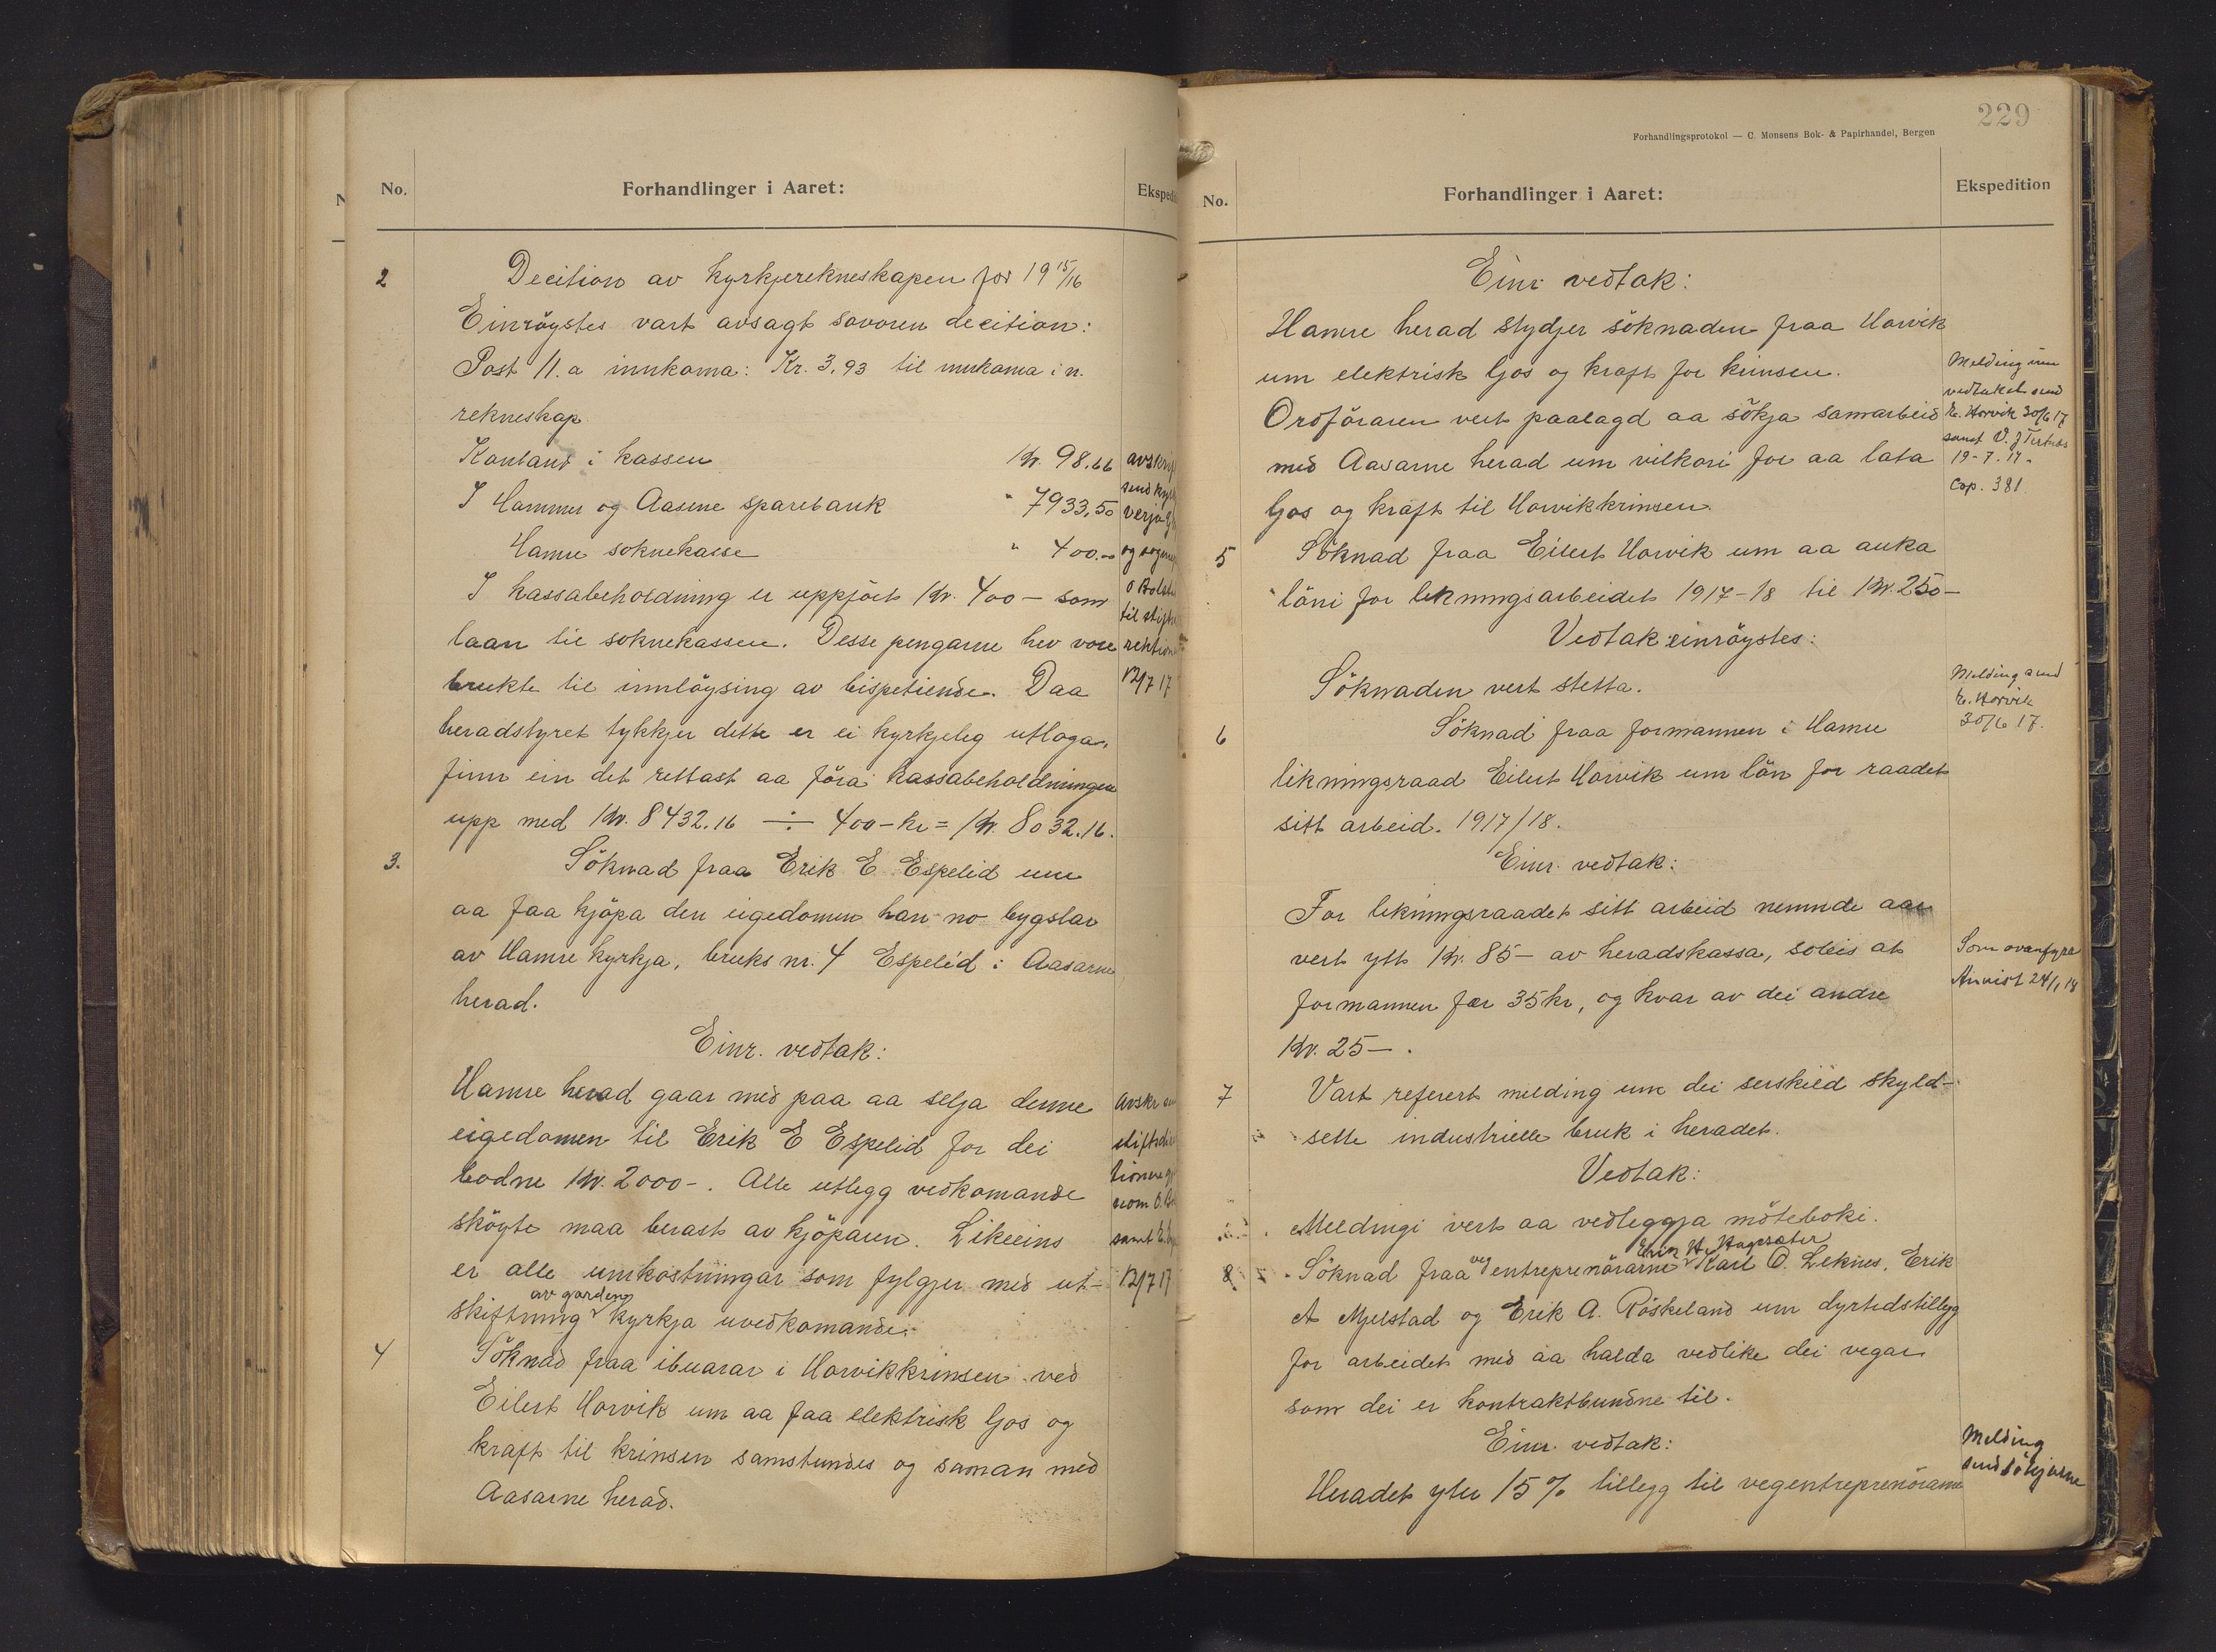 No.
Forhandlinger i Aaret:
2
Decition av kyrkjerekneskapen for 19 15/16
Einröystes vart avsagt sovoren decition:
Post 11.a innkoma: Kr. 3,93 til innkoma i n.
rekneskap
Kontant i kassen Kr. 98,66
I Hammer og Aasene sparebank " 7933,50
Hamre soknekasse " 400.00
I kassabeholdning er uppfört Kr. 400 – som
laan til soknekassen. Desse pengarne hev vore
brukte til innlöysing av bispetiende. Daa
heradstyret tykkjer dette er ei kyrkjeleg utloga,
finn ein det rettast aa föra kassabeholdningen
upp med Kr. 8432.16 ÷ 400 – kr = Kr. 8032.16.
avskrift
send
og
12/7 17
3.
Söknad fraa Erik E Espelid um
aa faa kjöpa den eigedomen han no bygslar
av Hamre kyrkja, bruks nr. 4 Espelid i Aasarne
herad.
Einr. vedtak:
Hamre herad gaar med paa aa selja denne
eigedomen til Erik E Espelid for dei
bodne Kr. 2000 –. Alle utlegg vedkomande
sköyte maa berast av kjöparen. Likeeins
er alle umkostningar som fylgjer med ut-
av garden
skiftning kyrkja uvedkomande.
Avskr
samt
12/7 17
4
Söknad fraa ibuarar i Horvikkrinsen ved
Eilert Horvik um aa faa elektrisk ljos og
kraft til krinsen samstundes og saman med
Aasarne herad.
229
Forhandlingsprotokol — C. Monsens Bok- & Papirhandel, Bergen
No.
Forhandlinger i Aaret:
Ekspedition
Einr vedtak:
Hamre herad stydjer söknaden fraa Horvik
um elektrisk ljos og kraft for krinsen.
Ordföraren vert paalagd aa sökja samarbeid
med Aasarne herad um vilkori for aa lata
ljos og kraft til Horvikkrinsen.
Melding um
vedtaket send
E. Horvik 30/6 17
samt
19-7-17.
Cop. 381
5
Söknad fraa Eilert Horvik um aa auka
löni for likningsarbeidet 1917-18 til Kr. 250 –
Vedtak einröystes:
Söknaden vert stetta.
Melding send
E. Horvik
30/6 17.
6
Söknad fraa formannen i Hamre
likningsraad Eilert Horvik um lön for raadet
sitt arbeid. 1917/18.
Einr. vedtak:
For likningsraadet sitt arbeid nemnde aar
vert ytt Kr. 85 – av heradskassa, soleis at
formannen fær 35 kr, og kvar av dei andre
Kr. 25 – .
Som ovanfyre
Anvist 24/1 18
7
Vart referert melding um dei serskild skyld-
sette industrielle bruk i heradet.
Vedtak:
Meldingi vert aa vedleggja möteboki.
8
Erik H. Hagesæter
Söknad fraa vegentreprenörarne Karl O. Leknes, Erik
A Mjelstad og Erik A. Röskeland um dyrtidstillegg
for arbeidet med aa halda vedlike dei vegar
som dei er kontraktbundne til.
Einr. vedtak:
Heradet yter 15 % tillegg til vegentreprenörarne
Melding
send sökjarne